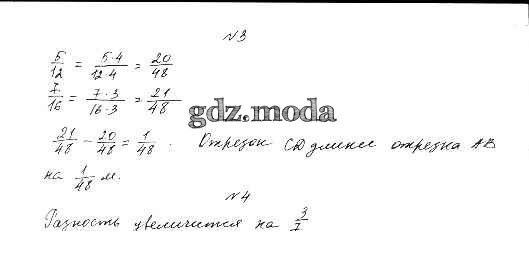 №3
5/12 = 5·4/12·4 = 20/48
7/16 = 7·3/16·3 = 21/48
gdz.moda
21/48 - 20/48 = 1/48. Отрезок CD длиннее отрезка AB
на 1/48 м.
№4
Разность увеличится на 3/7